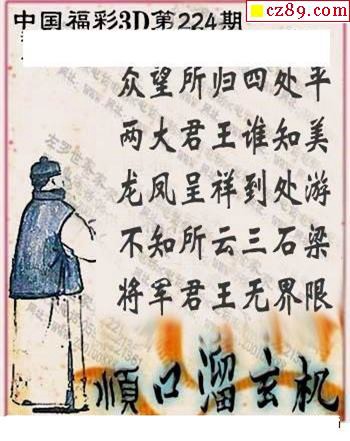 cz89.com
中国福彩3D第224期
众望所归四处平
两大君王谁知美
龙凤呈祥到处游
不知所云三石梁
将军君王无界限
順口溜玄机